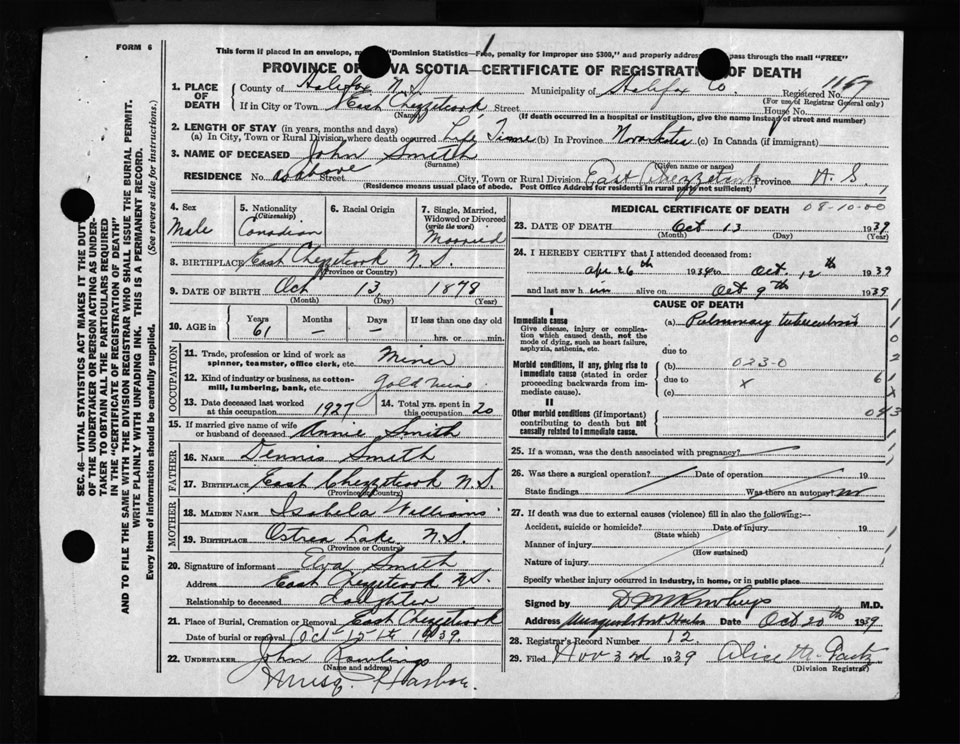 FORM 6
This form if placed in an envelope, "Dominion Statistics—Free, penalty for improper use $300," and properly pass through the mail "FREE"
PROVINCE OF NOVA SCOTIA—CERTIFICATE OF REGISTRATION OF DEATH
1. PLACE OF DEATH County of Halifax N.S. Municipality of Halifax Co. Registered No. 1169
(For use of Registrar General only)
If in City or Town East Chezzetcook Street House No.
(Name) (If death occurred in a hospital or institution, give the name instead of street and number)
2. LENGTH OF STAY (in years, months and days)
(a) In City, Town or Rural Division where death occurred Life Time (b) In Province Nova Scotia (c) In Canada (if immigrant)
3. NAME OF DECEASED John Smith
(Surname) (Given name or names)
RESIDENCE No. as above Street City, Town or Rural Division East Chezzetcook Province N.S.
(Residence means usual place of abode. Post Office Address for residents in rural parts not sufficient)
4. Sex Male
5. Nationality (Citizenship) Canadian
6. Racial Origin
7. Single, Married, Widowed or Divorced (write the word) Married
8. BIRTHPLACE East Chezzetcook N.S.
(Province or Country)
9. DATE OF BIRTH Oct 13 1878
(Month) (Day) (Year)
10. AGE in Years Months Days If less than one day old
61 — — hrs. or min.
OCCUPATION
11. Trade, profession or kind of work as spinner, teamster, office clerk, etc. Miner
12. Kind of industry or business, as cotton-mill, lumbering, bank, etc. Gold Mine
13. Date deceased last worked at this occupation 1927
14. Total yrs. spent in this occupation 20
15. If married give name of wife or husband of deceased Annie Smith
FATHER
16. NAME Dennis Smith
17. BIRTHPLACE East Chezzetcook N.S.
(Province or Country)
MOTHER
18. MAIDEN NAME Isabela Williams
19. BIRTHPLACE Ostrea Lake N.S.
(Province or Country)
20. Signature of informant Elva Smith
Address East Chezzetcook N.S.
Relationship to deceased daughter
21. Place of Burial, Cremation or Removal East Chezzetcook
Date of burial or removal Oct 15th 1939
22. UNDERTAKER John Rawlings
(Name and address)
Musq. Harbor.
MEDICAL CERTIFICATE OF DEATH 08-10-00
23. DATE OF DEATH Oct 13 1939
(Month) (Day) (Year)
24. I HEREBY CERTIFY that I attended deceased from:
Apr 26th 1934 to Oct. 12th 1939
and last saw him alive on Oct 9th 1939
CAUSE OF DEATH
I
Immediate cause (a) Pulmonary tuberculosis
Give disease, injury or complication which caused death, not the mode of dying, such as heart failure, asphyxia, asthenia, etc.
due to
Morbid conditions, if any, giving rise to immediate cause (stated in order proceeding backwards from immediate cause)
(b) 023-0
due to x
(c)
II
Other morbid conditions (if important) contributing to death but not causally related to immediate cause.
25. If a woman, was the death associated with pregnancy?
26. Was there a surgical operation? Date of operation 19
State findings Was there an autopsy no
27. If death was due to external causes (violence) fill in also the following:—
Accident, suicide or homicide? Date of injury 19
(State which)
Manner of injury
(How sustained)
Nature of injury
Specify whether injury occurred in industry, in home, or in public place
Signed by D M Rowlings M.D.
Address Musquodoboit Harbor Date Oct 20th 1939
28. Registrar's Record Number 12.
29. Filed Nov 3rd 1939 Alice M.
(Division Registrar)
SEC. 46—VITAL STATISTICS ACT MAKES IT THE DUTY
OF THE UNDERTAKER OR PERSON ACTING AS UNDER-
TAKER TO OBTAIN ALL THE PARTICULARS REQUIRED
IN THE "CERTIFICATE OF REGISTRATION OF DEATH" AND TO FILE THE SAME WITH THE DIVISION REGISTRAR WHO SHALL ISSUE THE BURIAL PERMIT.
WRITE PLAINLY WITH UNFADING INK. THIS IS A PERMANENT RECORD.
Every item of information should be carefully supplied. (See reverse side for instructions.)